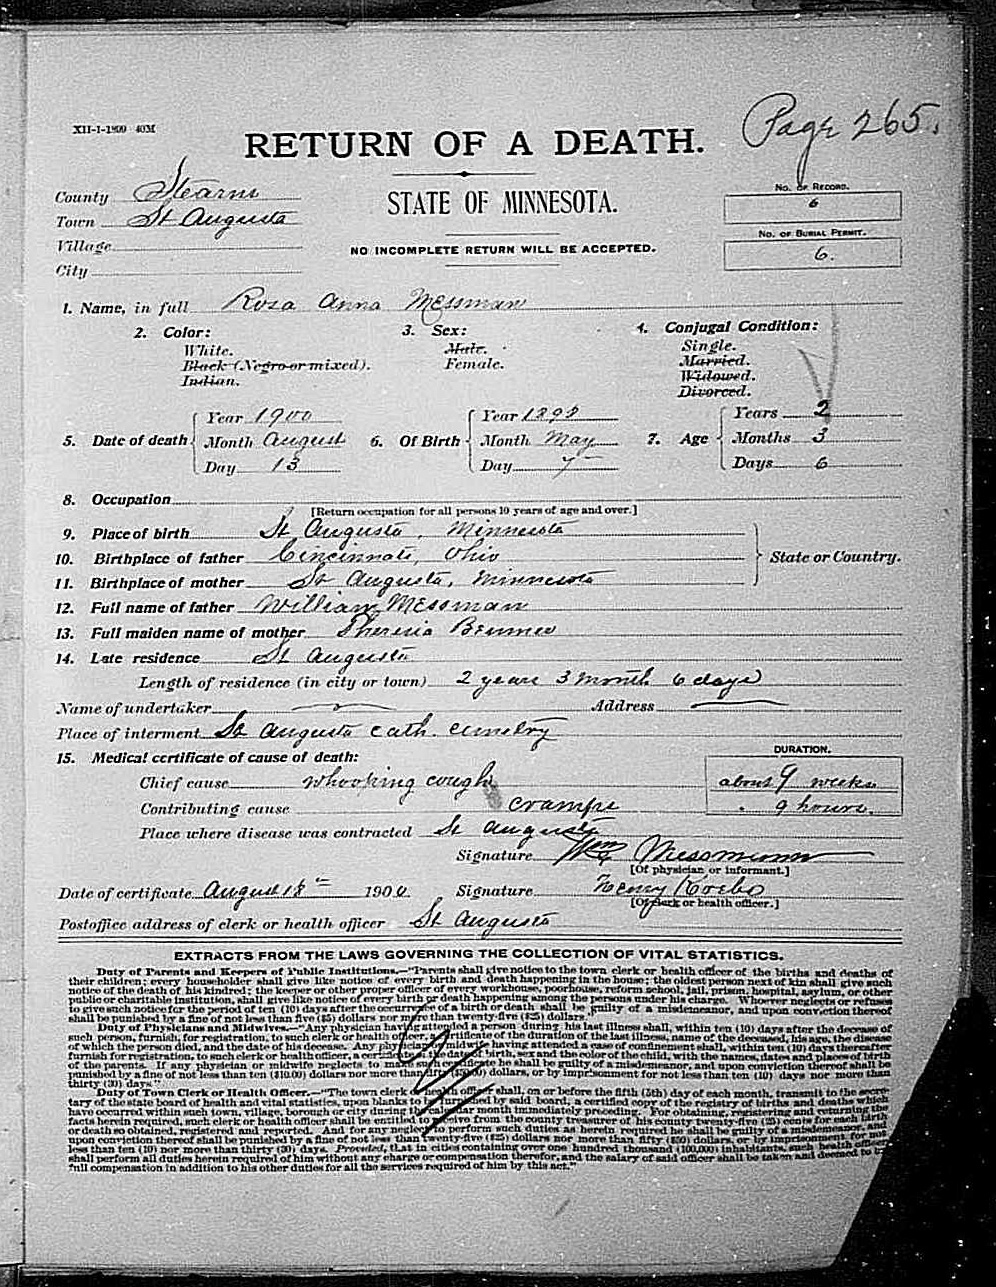 Page 265.
XII-1-1899 40M
RETURN OF A DEATH.
County Stearns
STATE OF MINNESOTA.
No. of Record.
6
Town St Augusta
Village
NO INCOMPLETE RETURN WILL BE ACCEPTED.
No. of Burial Permit.
6.
City
1. Name, in full Rosa Anna Messman
2. Color: 3. Sex: 4. Conjugal Condition:
White. Male. Single.
Black (Negro or mixed). Female. Married.
Indian. Widowed.
Divorced.
Year 1900 Year 1898 Years 2
5. Date of death Month August 6. Of Birth Month May 7. Age Months 3
Day 13 Day 7 Days 6
8. Occupation
[Return occupation for all persons 10 years of age and over.]
9. Place of birth St Augusta, Minnesota
10. Birthplace of father Cincinnati, Ohio State or Country.
11. Birthplace of mother St Augusta, Minnesota
12. Full name of father William Messman
13. Full maiden name of mother Theresia
14. Late residence St Augusta
Length of residence (in city or town) 2 years 3 month 6 days
Name of undertaker Address
Place of interment St Augusta cath. cemetry
15. Medical certificate of cause of death: DURATION.
Chief cause whooping cough about 9 weeks
Contributing cause cramps 9 hours.
Place where disease was contracted St Augusta
Signature Wm Messmann
[Of physician or informant.]
Date of certificate August 18th 1900 Signature Henry
[Of clerk or health officer.]
Postoffice address of clerk or health officer St Augusta
EXTRACTS FROM THE LAWS GOVERNING THE COLLECTION OF VITAL STATISTICS.
Duty of Parents and Keepers of Public Institutions.—"Parents shall give notice to the town clerk or health officer of the births and deaths of
their children; every householder shall give like notice of every birth and death happening in the house; the oldest person next of kin shall give such
notice of the death of his kindred; the keeper or other proper officer of every workhouse, poorhouse, reform school, jail, prison, hospital, asylum, or other
public or charitable institution, shall give like notice of every birth or death happening among the persons under his charge. Whoever neglects or refuses
to give such notice for the period of ten (10) days after the occurrence of a birth or death shall be guilty of a misdemeanor, and upon conviction thereof
shall be punished by a fine of not less than five ($5) dollars nor more than twenty-five ($25) dollars.
Duty of Physicians and Midwives.—"Any physician having attended a person during his last illness shall, within ten (10) days after the decease of
such person, furnish, for registration, to such clerk or health officer, a certificate of the duration of the last illness, name of the deceased, his age, the disease
of which the person died, and the date of his decease. Any physician or midwife having attended a case of confinement shall, within ten (10) days thereafter
furnish for registration, to such clerk or health officer, a certificate of the date of birth, sex and the color of the child, with the names, dates and places of birth
of the parents. If any physician or midwife neglects to make such certificate he shall be guilty of a misdemeanor, and upon conviction thereof shall be
punished by a fine of not less than ten ($10.00) dollars nor more than fifty ($50.00) dollars, or by imprisonment for not less than ten (10) days nor more than
thirty (30) days."
Duty of Town Clerk or Health Officer.—"The town clerk or health officer shall, on or before the fifth (5th) day of each month, transmit to the secre-
tary of the state board of health and vital statistics, upon blanks to be furnished by said board, a certified copy of the registry of births and deaths which
have occurred within such town, village, borough or city during the calendar month immediately preceding. For obtaining, registering and returning the
facts herein required, such clerk or health officer shall be entitled to receive from the county treasurer of his county twenty-five (25) cents for each birth
or death so obtained, registered and reported. And for any neglect to perform such duties as herein required he shall be guilty of a misdemeanor, and
upon conviction thereof shall be punished by a fine of not less than twenty-five ($25) dollars nor more than fifty ($50) dollars, or by imprisonment for not
less than ten (10) nor more than thirty (30) days. Provided, that in cities containing over one hundred thousand (100,000) inhabitants, such health officer
shall perform all duties herein required of him without any charge or compensation therefor, and the salary of said officer shall be taken and deemed to be
full compensation in addition to his other duties for all the services required of him by this act."